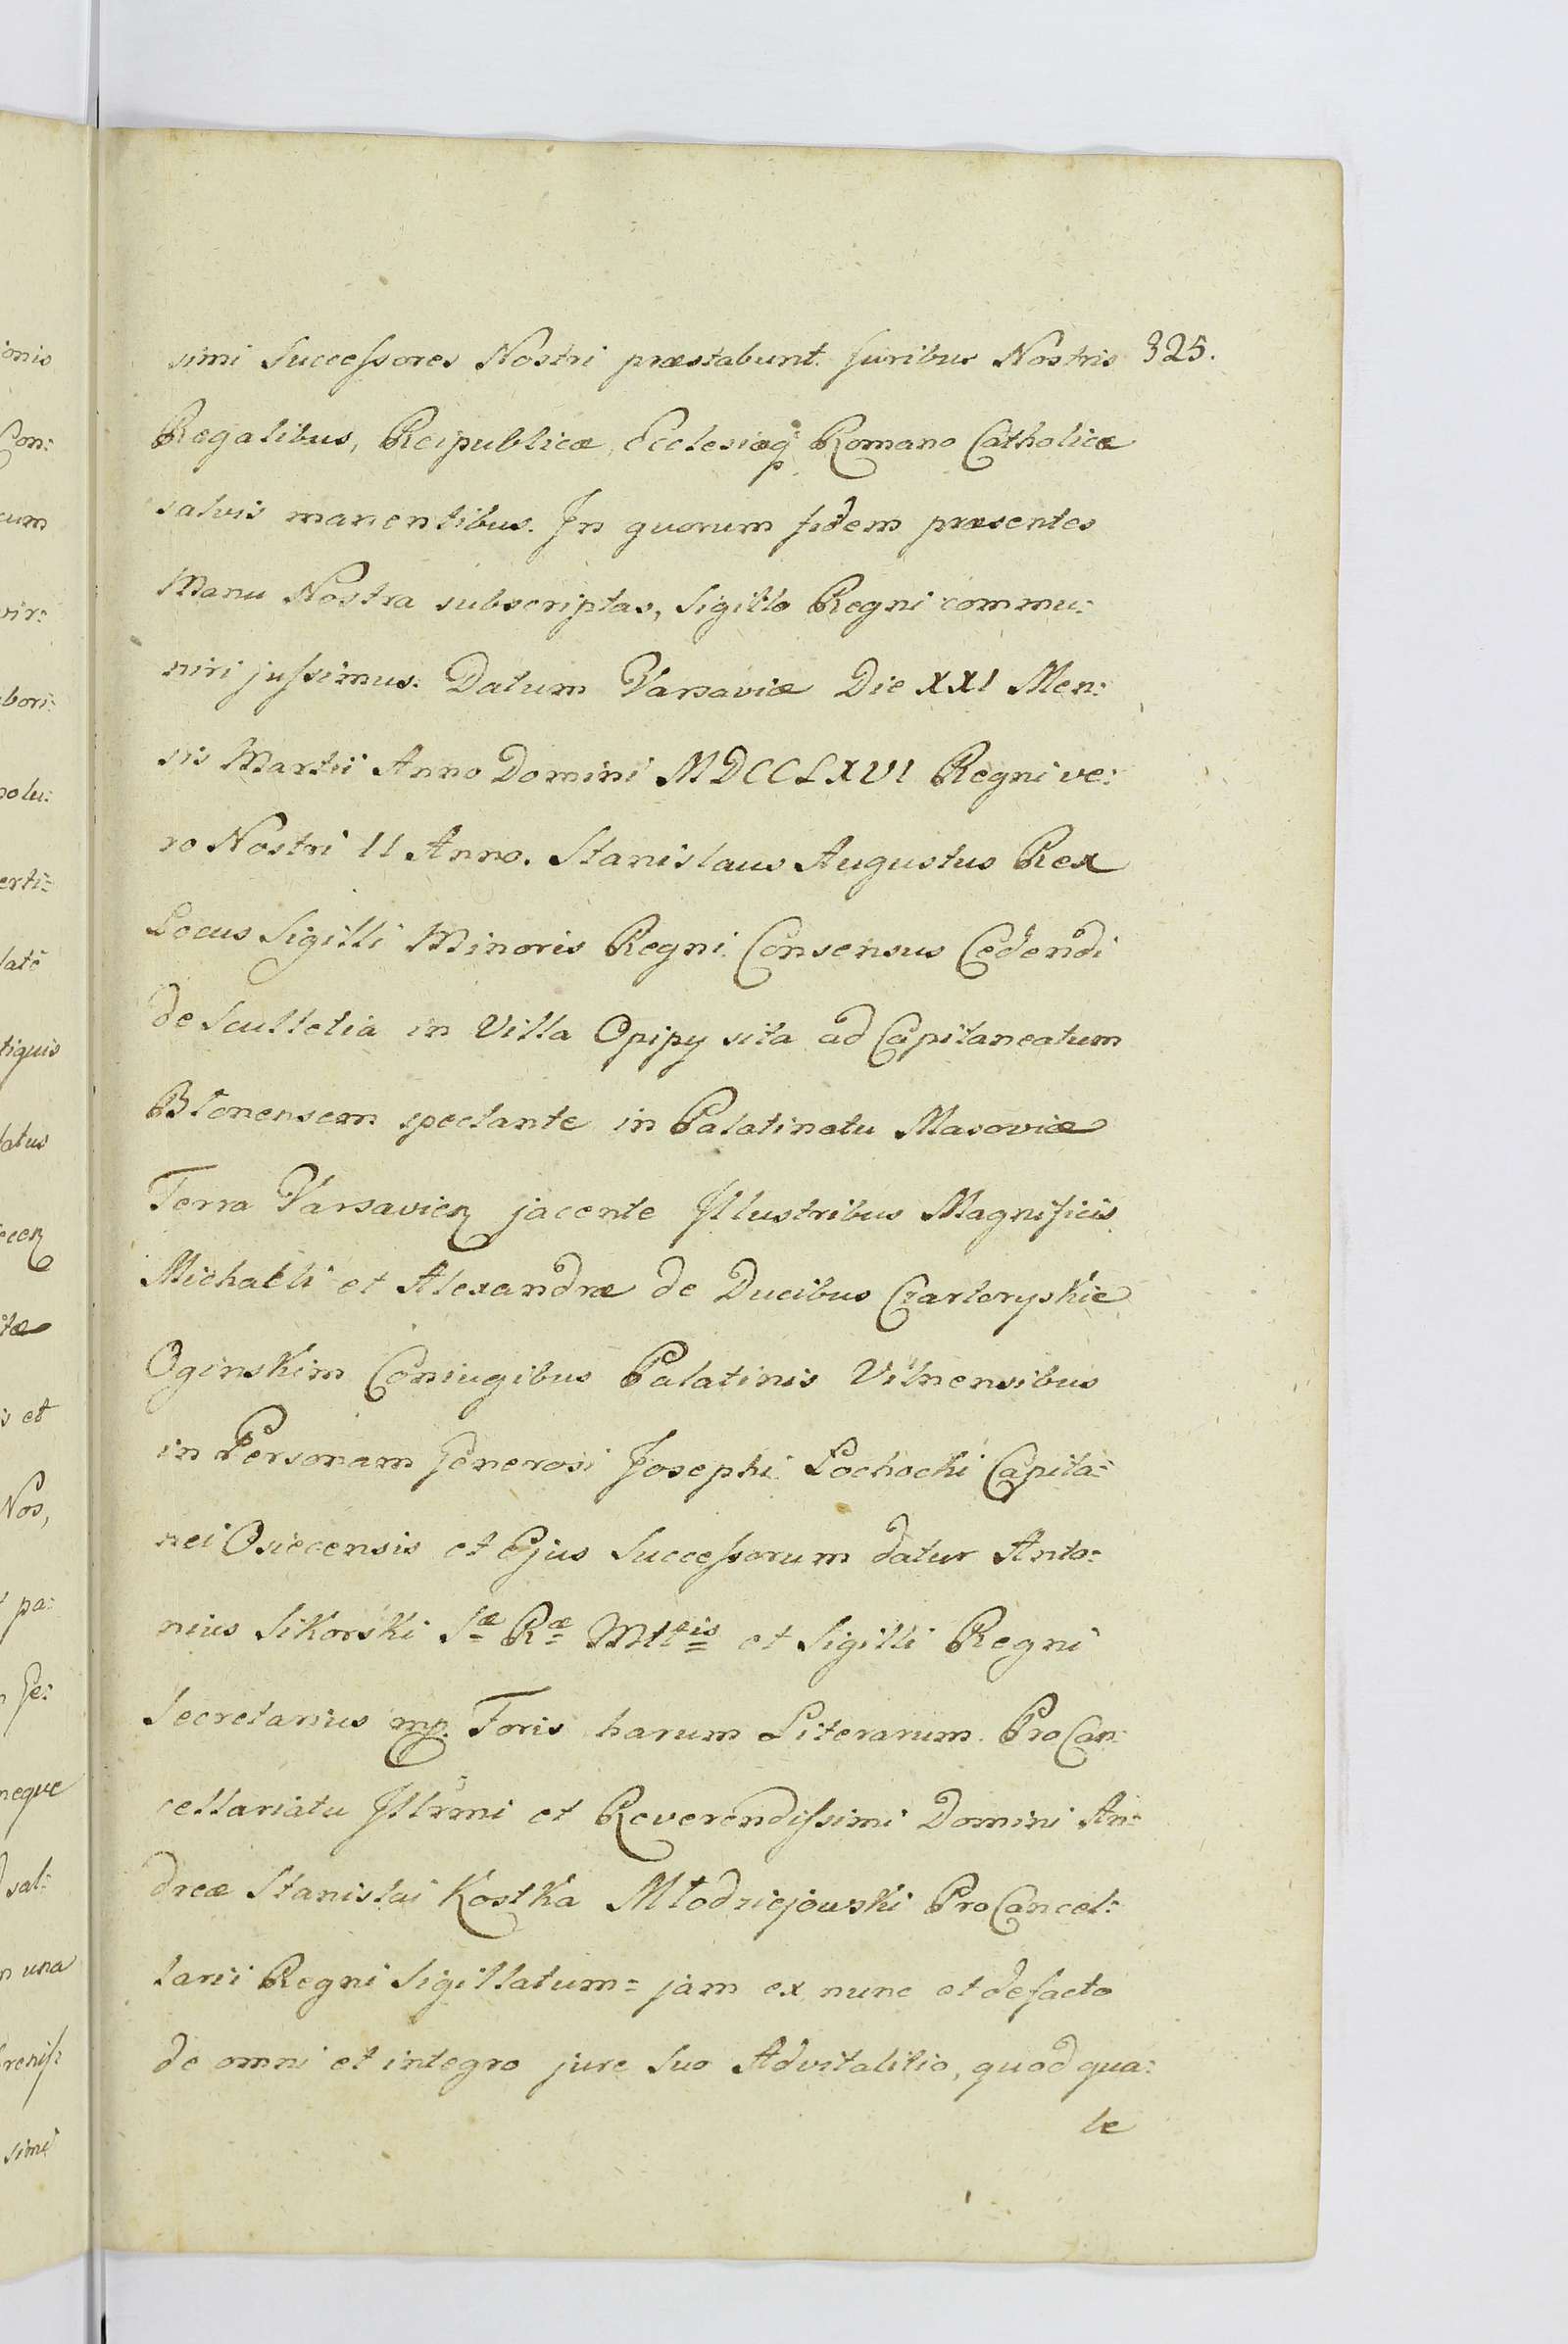 325.
simi Successores Nostri præstabunt. Juribus Nostris
Regalibus, Reipublicæ, Ecclesiæq; Romano Catholicæ
salvis manentibus. In quorum fidem præsentes
Manu Nostra subscriptas, Sigillo Regni commu:
niri jussimus. Datum Varsaviæ Die XXI Men:
sis Martii Anno Domini MDCCLXVI Regni ve:
ro Nostri II Anno. Stanislaus Augustus Rex
Locus Sigilli Minoris Regni. Consensus Cedendi
de Scultetia in Villa Opipy sita ad Capitaneatum
Blonensem spectante in Palatinatu Masoviæ
Terra Varsavien jacente Illustribus Magnificis
Michaeli et Alexandræ de Ducibus Czartoryskie
Oginskim Coniugibus Palatinis Vilnensibus
in Personam Generosi Josephi Lochocki Capita:
nei Osiecensis et Ejus Successorum datur Anto:
nius Sikorski Sæ Ræ Mttis et Sigilli Regni
Secretarius mp. Foris harum Literarum. ProCan:
cellariatu Illrmi et Reverendissimi Domini An:
dreæ Stanislai Kostka Młodziejowski ProCancel:
larii Regni Sigillatum= jam ex nunc et defacto
de omni et integro jure suo Advitalitio, quod qua:
le
ionis
Con:
cum
vir:
bori:
nolu:
erti:
latè
tiquis
latus
ecen
itæ
s et
Nos,
pa:
Ge:
neque
sal:
n una
renis:
simi